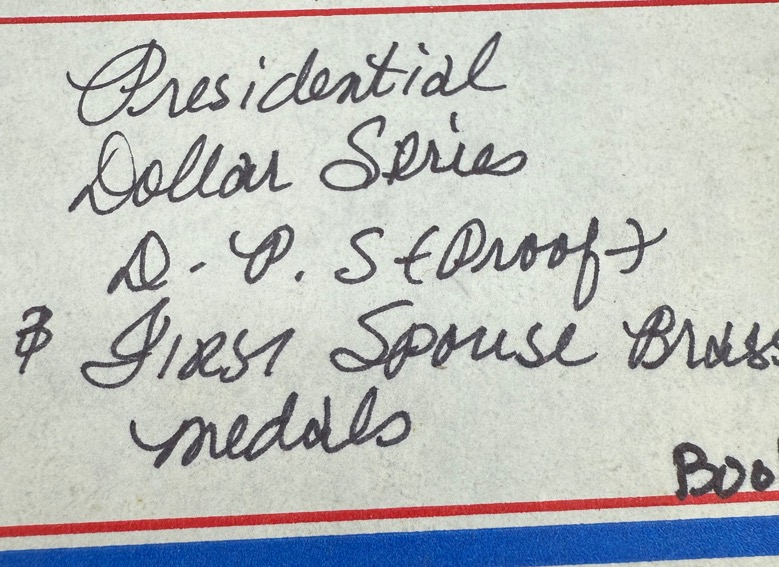 Presidential
Dollar Series
D. P. S (Proof)
& First Spouse Brass
medals